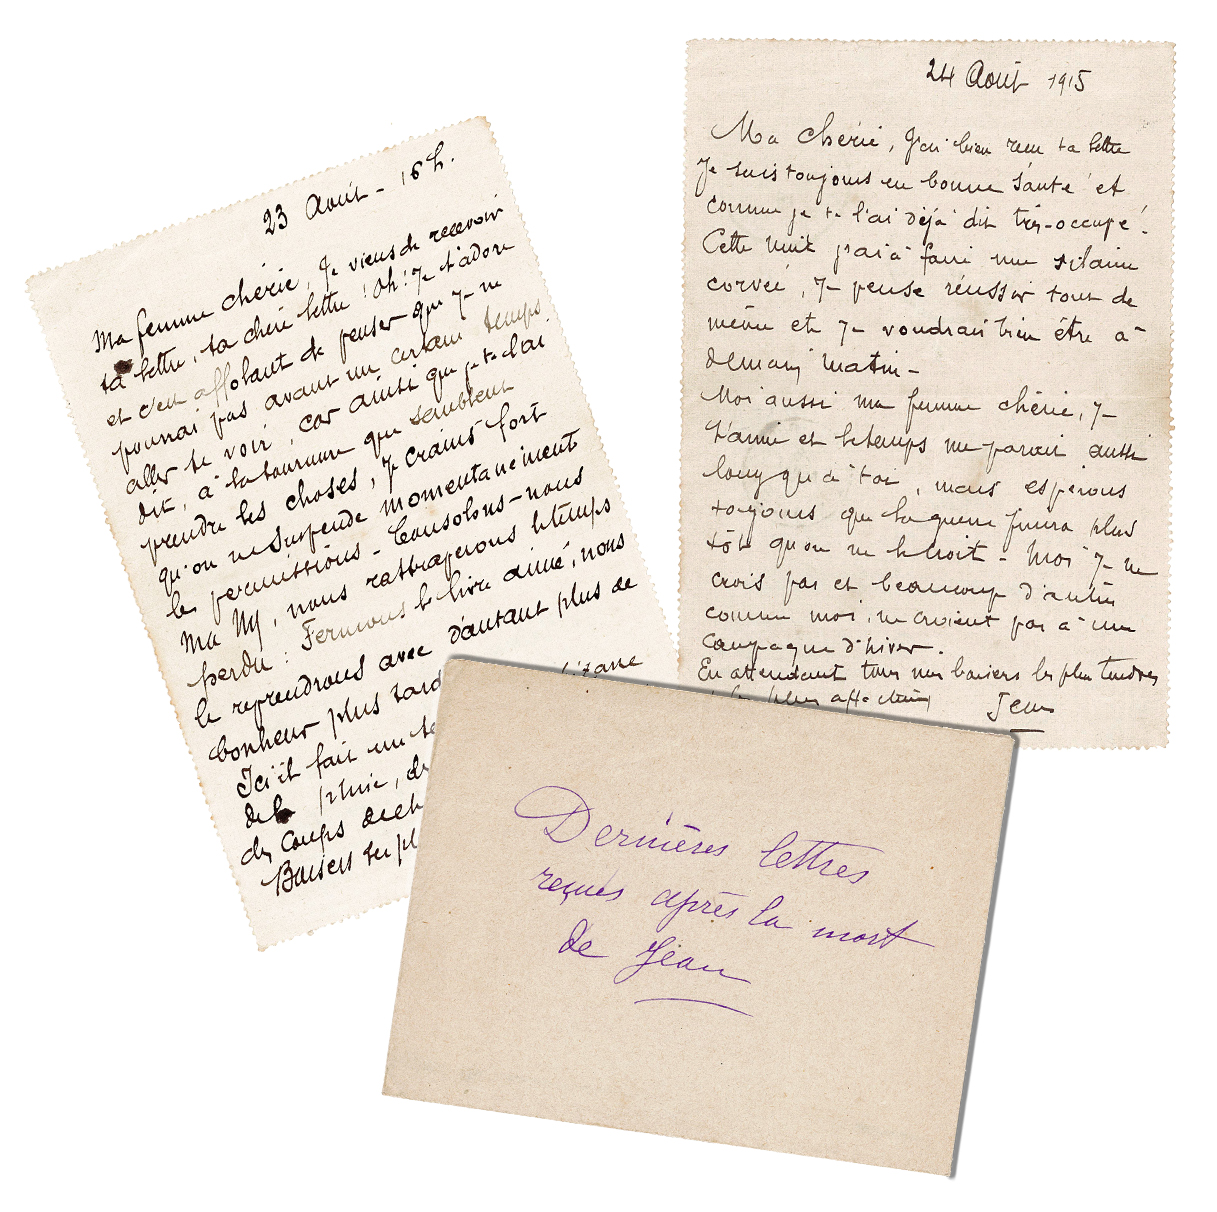 23 Août - 16 h.
Ma femme chérie, Je viens de recevoir
ta lettre, ta chère lettre ! Oh ! Je t'adore
et c'est affolant de penser que je ne
pourrai pas avant un certain temps
aller te voir, car ainsi que je te l'ai
dit, à la tournure que semblent
prendre les choses, je crains fort
qu'on ne suspende momentanément
les permissions - Consolons-nous
Ma Ny, nous rattraperons le temps
perdu : Fermons le livre aimé, nous
le reprendrons avec d'autant plus de
bonheur plus tard
Ici il fait un te
de la pluie, de
des coups de ch
Baisers les pl
24 Août 1915
Ma chérie, J'ai bien reçu ta lettre
Je suis toujours en bonne santé et
comme je te l'ai déjà dit très-occupé !
Cette nuit j'ai à faire une vilaine
corvée, je pense réussir tout de
même et je voudrais bien être à
demain matin -
Moi aussi ma femme chérie, je
t'aime et le temps me parait aussi
long qu'à toi, mais espérons
toujours que la guerre finira plus
tôt qu'on ne le croit - Moi je ne
crois pas et beaucoup d'autres
comme moi, ne croient pas à une
campagne d'hiver.
En attendant tous mes baisers les plus tendres
et les plus affectueux
Jean
Dernières lettres
reçues après la mort
de Jean